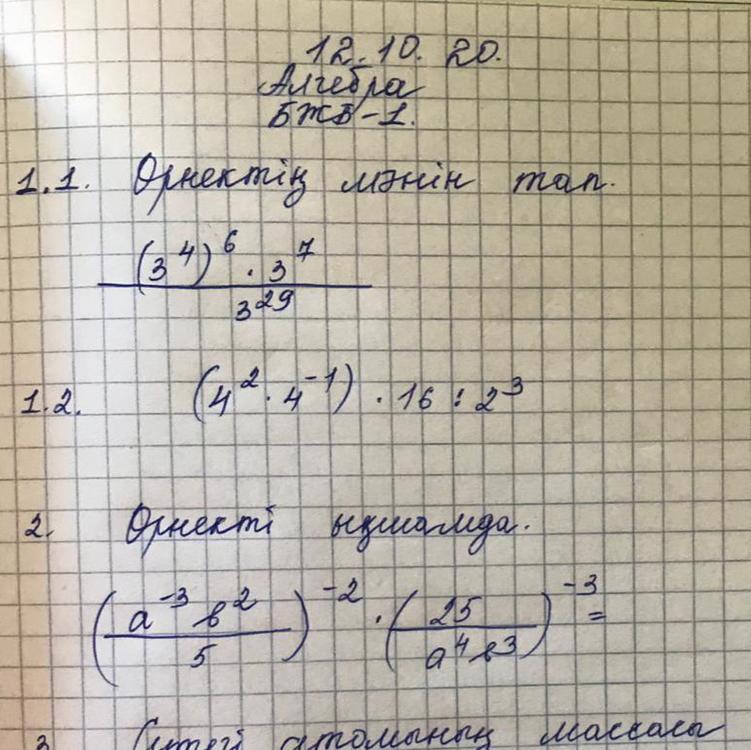 12.10.20.
Алгебра
БЖБ-1.
1.1. Өрнектің мәнін тап.
(3⁴)⁶ · 3⁷
3²⁹
1.2. (4² · 4⁻¹) · 16 : 2³
2. Өрнекті ықшамда.
(a⁻³ b² / 5)⁻² · (25 / a⁴b³)⁻³ =
3. атомының массасы